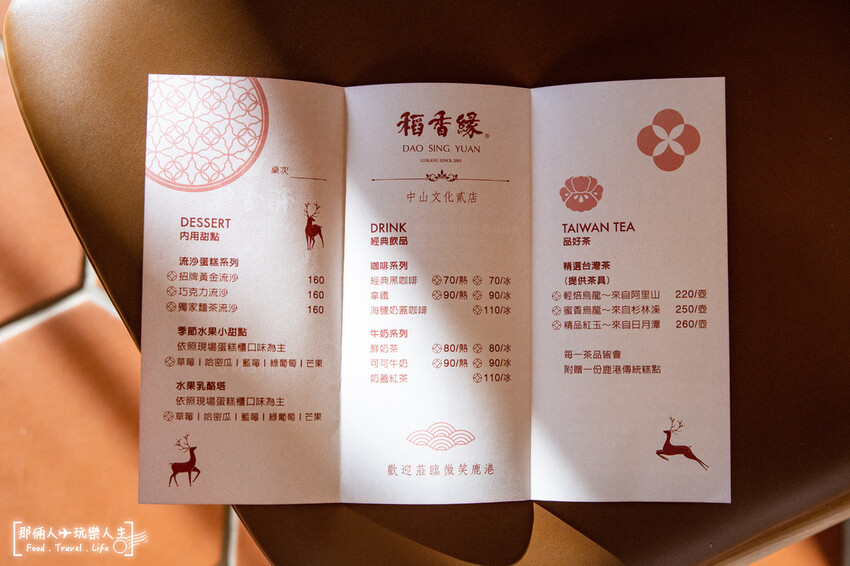 桌次
DESSERT
內用甜點
流沙蛋糕系列
招牌黃金流沙 160
巧克力流沙 160
獨家麵茶流沙 160
季節水果小甜點
依照現場蛋糕櫃口味為主
草莓|哈密瓜|藍莓|綠葡萄|芒果
水果乳酪塔
依照現場蛋糕櫃口味為主
草莓|哈密瓜|藍莓|綠葡萄|芒果
稻香緣®
DAO SING YUAN
LUKANG SINCE 2001
中山文化貳店
DRINK
經典飲品
咖啡系列
經典黑咖啡 70/熱 70/冰
拿鐵 90/熱 90/冰
海鹽奶蓋咖啡 110/冰
牛奶系列
鮮奶茶 80/熱 80/冰
可可牛奶 90/熱 90/冰
奶蓋紅茶 110/冰
歡迎蒞臨微笑鹿港
TAIWAN TEA
品好茶
精選台灣茶
(提供茶具)
輕焙烏龍～來自阿里山 220/壺
蜜香烏龍～來自杉林溪 250/壺
精品紅玉～來自日月潭 260/壺
每一茶品皆會
附贈一份鹿港傳統糕點
那倆人 玩樂人生
Food . Travel . Life